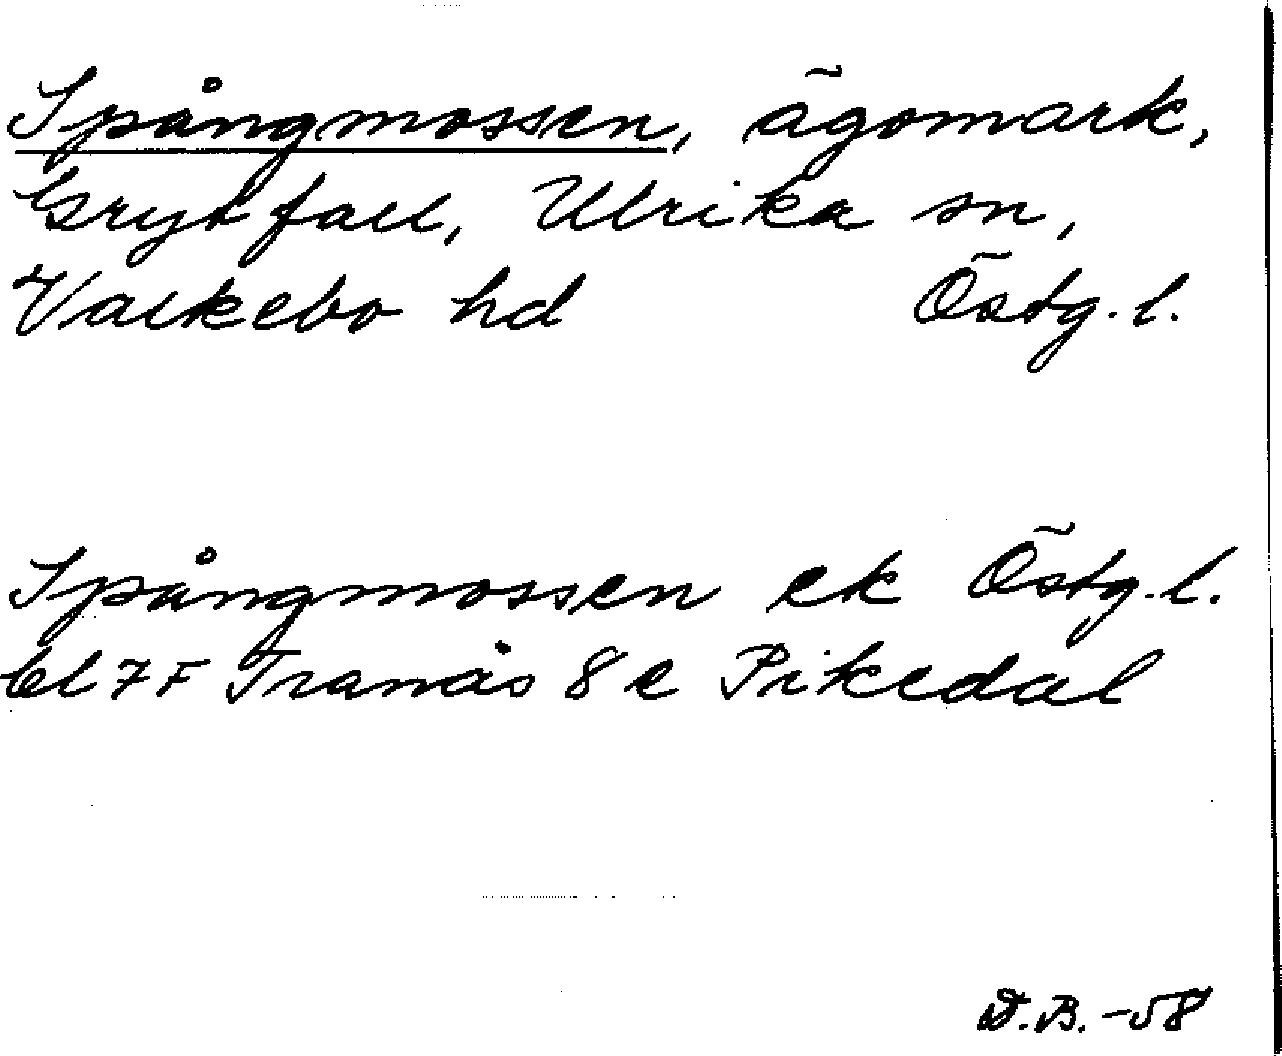 Spångmossen, ägomark,
Grytfall, Ulrika sn,
Valkebo hd Östg. l.
Spångmossen ek Östg. l.
bl 7F Tranås 8 e Pikedal
D.B. -58